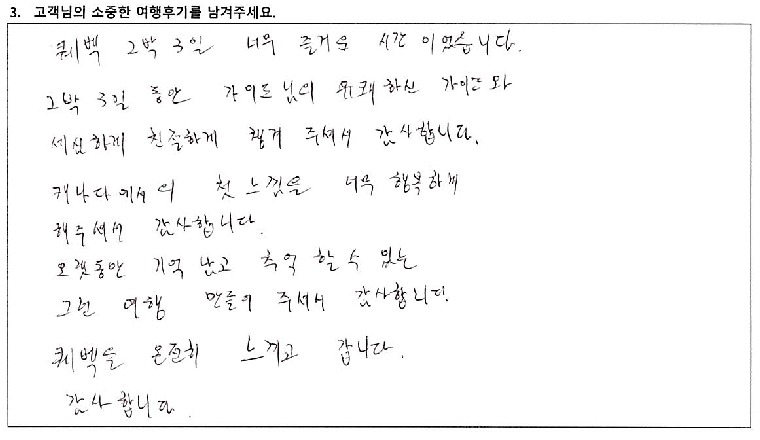 3. 고객님의 소중한 여행후기를 남겨주세요.
퀘벡 2박 3일 너무 즐거운 시간이었습니다.
2박 3일 동안 가이드님의 유쾌하신 가이드와
세심하게 친절하게 챙겨 주셔서 감사합니다.
캐나다에서의 첫 느낌을 너무 행복하게
해주셔서 감사합니다.
오랫동안 기억 남고 추억 할 수 있는
그런 여행 만들어 주셔서 감사합니다.
퀘벡을 온전히 느끼고 갑니다.
감사합니다.